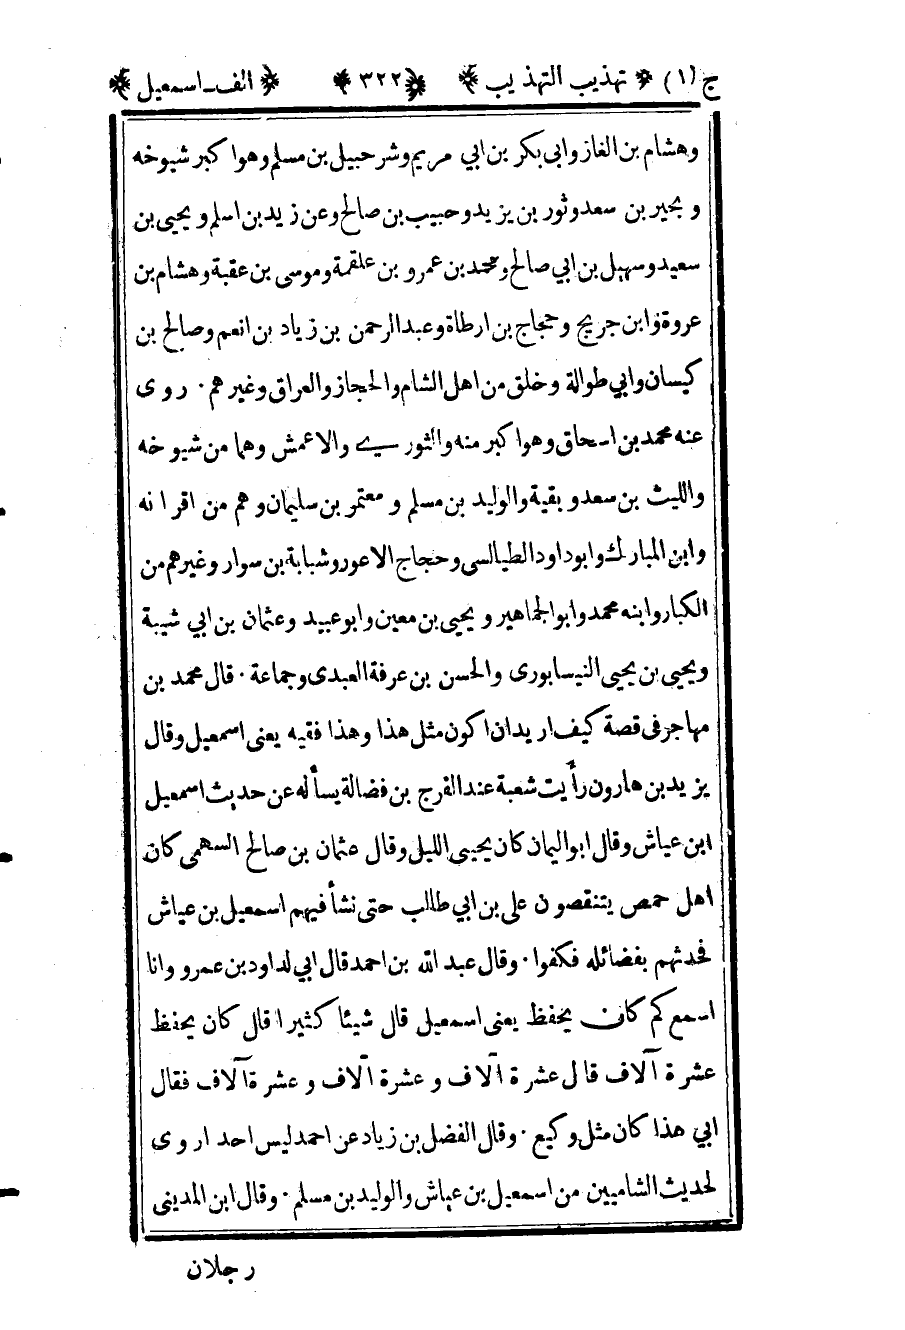 ج (١) ﴿ تهذيب التهذيب ﴾ ﴿ ٣٢٢ ﴾ ﴿ الف ـ اسمعيل ﴾
وهشام بن الغاز وابي بكر بن ابي مريم وشرحبيل بن مسلم وهو اكبر شيوخه
و بحير بن سعد وثور بن يزيد وحبيب بن صالح وعن زيد بن اسلم ويحيى بن
سعيد وسهيل بن ابي صالح ومحمد بن عمرو بن علقمة وموسى بن عقبة وهشام بن
عروة وابن جريج وحجاج بن ارطاة وعبد الرحمن بن زياد بن انعم وصالح بن
كيسان وابي طوالة وخلق من اهل الشام والحجاز والعراق وغيرهم · روى
عنه محمد بن اسحاق وهو اكبر منه والثوري والاعمش وهما من شيوخه
والليث بن سعد وبقية والوليد بن مسلم ومعتمر بن سليمان وهم من اقرانه
وابن المبارك وابو داود الطيالسي وحجاج الاعور وشبابة بن سوار وغيرهم من
الكبار وابنه محمد وابو الجماهير ويحيى بن معين وابو عبيد وعثمان بن ابي شيبة
ويحيى بن يحيى النيسابورى والحسن بن عرفة العبدى وجماعة · قال محمد بن
مهاجر فى قصة كيف اريد ان اكون مثل هذا وهذا فقيه يعنى اسمعيل وقال
يزيد بن هارون رأيت شعبة عند الفرج بن فضالة يسأله عن حديث اسمعيل
ابن عياش وقال ابو اليمان كان يحيى الليل وقال عثمان بن صالح السهمى كان
اهل حمص يتنقصون على بن ابي طالب حتى نشأ فيهم اسمعيل بن عياش
فحدثهم بفضائله فكفوا · وقال عبد الله بن احمد قال ابي لداود بن عمرو وانا
اسمع كم كان يحفظ يعنى اسمعيل قال شيئا كثيرا قال كان يحفظ
عشرة آلاف قال عشرة آلاف وعشرة آلاف وعشرة آلاف فقال
ابي هذا كان مثل وكيع · وقال الفضل بن زياد عن احمد ليس احد اروى
لحديث الشاميين من اسمعيل بن عياش والوليد بن مسلم · وقال ابن المدينى
رجلان